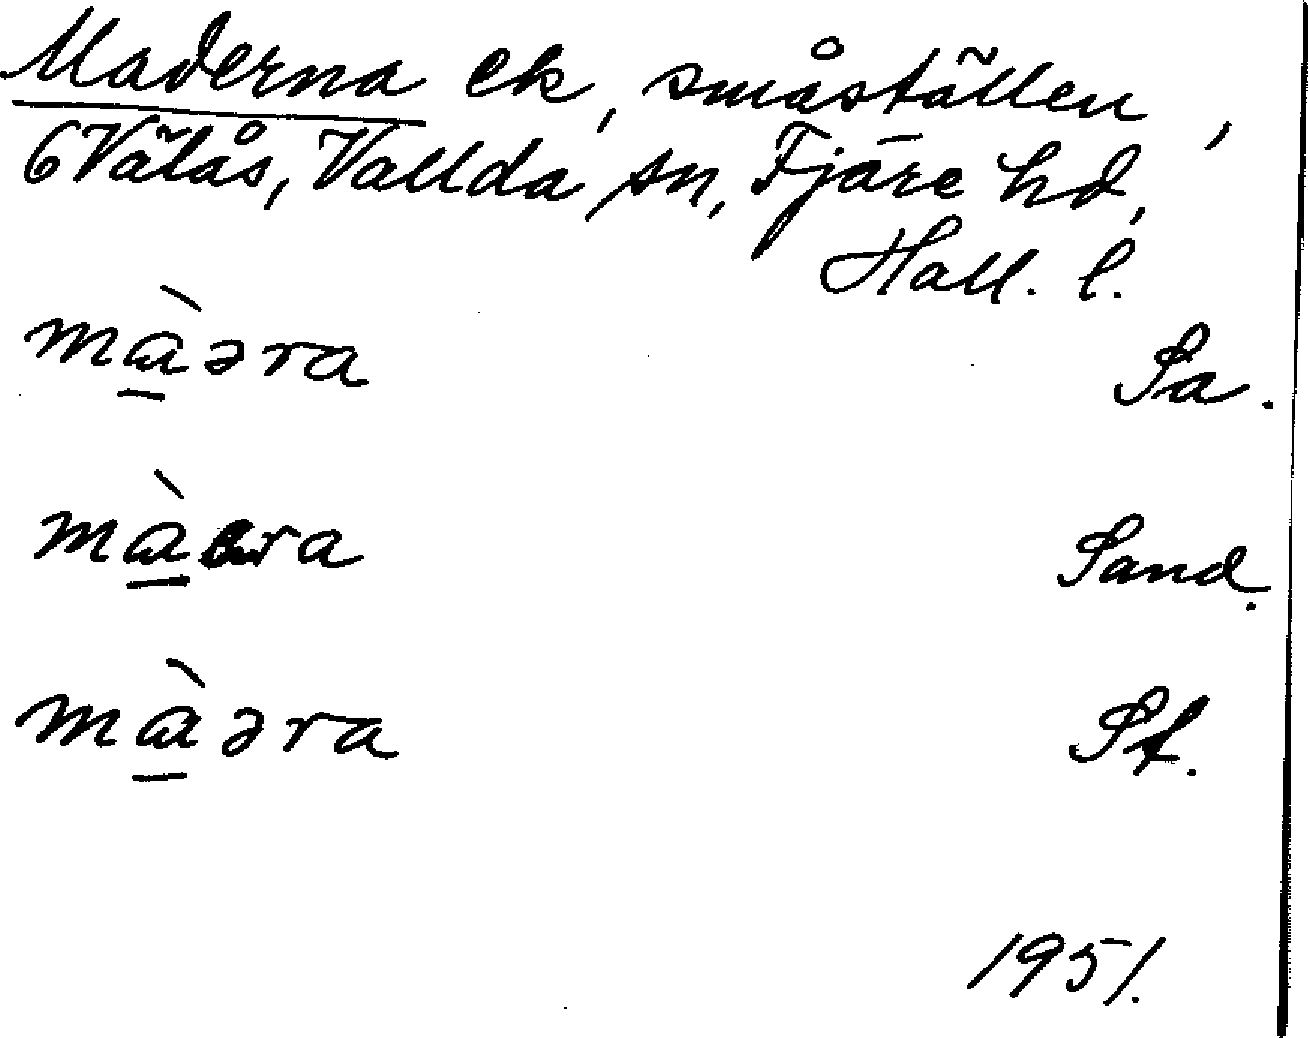 Maderna ek, småställen,
6 Välås, Vallda sn, Fjäre hd,
Hall. l.
mɑ̲̀əra Sa.
mɑ̲̀əra Sand.
mɑ̲̀əra
1951.